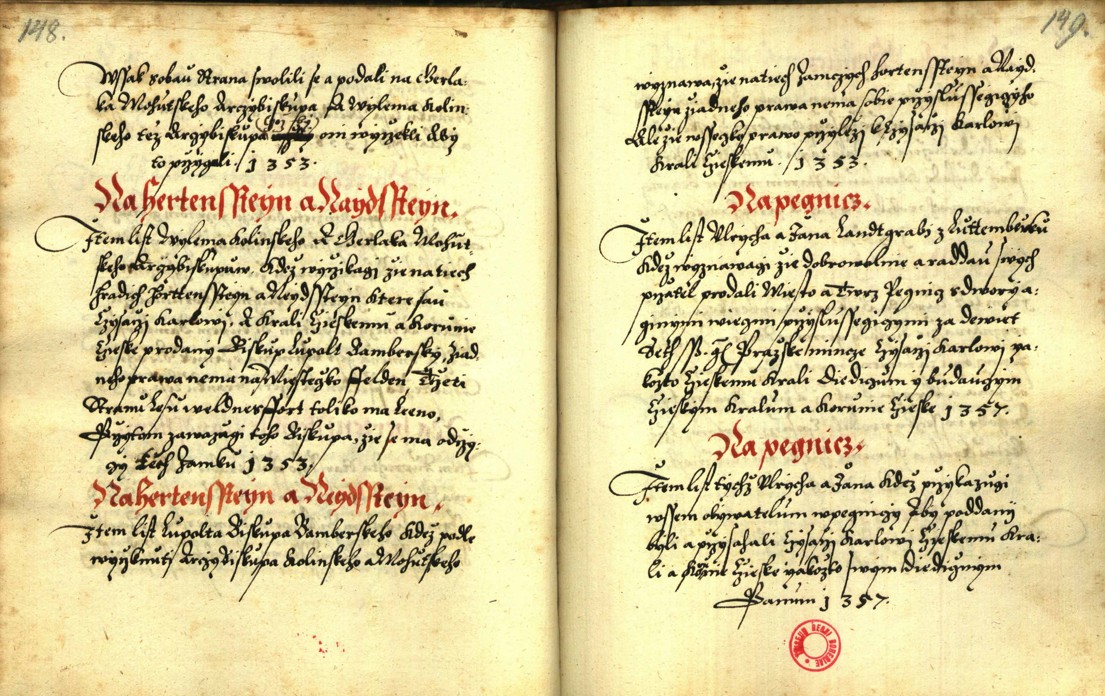 148.
Wssak z obau Strana swolili se a podali na Gerla:
ka Mohutskeho Arczybiskupa A Wylema Kolin:
skeho tez Arczybiskupa oni wyrzekli Aby
to przygali. 1353.
Na hertenssteyn a Naydssteyn.
Jtem list Wylema kolinskeho A Gerlaka Mohut
skeho Arczybiskupuw, Kdez wyrzikagi zie na tiech
hradich horttenssteyn a Neydssteyn ktere sau
Czysarzi Karlowi, A Krali Czieskemu a korunie
Czieske prodany Biskup Lupolt Bambersky, ziad
neho prawa nema na Miesteczko Felden Trzeti
Stranu Lesu weldnersfort toliko ma Leeno,
Przytom zawazugi toho Biskupa, zie se ma odrzy:
czy Tech Zamku 1353.
Na hertenssteyn a Neydssteyn.
Jtem list Lupolta Biskupa Bamberskeho Kdez podle
wyrzknuti Arczybiskupa Kolinskeho a Mohutskeho
149.
wyznawa, zie na tiech Zamczych hortenssteyn a Nayd.
ssteyn ziadneho prawa nema sobie przyslussegiczyho
Ale zie wsseczko prawo przylezi k Czysarzi Karlowi
Krali Czieskemu. 1353.
Na pegnicz.
Jtem list Vlrycha a Jana Landtgrabi z Luttemberku
Kdez wyznawagi zie dobrowolnie a raddau swych
przatel prodali Miesto a Twrz Pegnicz s dwory a:
ginymi wieczmi przyslussegiczymi za dewiet
Seth ss. gr. Prazske mincze Czysarzi Karlowi ya:
kozto Czieskemu Krali Diediczum y buduaczym
Czieskym Kralum a Korunie Czieske 1357.
Na pegnicz.
Jtem list tychz Vlrycha a Jana Kdez przykazugi
wssem obywatelum w pegniczy Aby poddany
byli a przysahali Czysarzi Karlowi Czieskemu Kra:
li a Korunie Czieske yakozto swym Diedicznym
Panum 1357.
MUSEUM REGNI BOHEMIAE